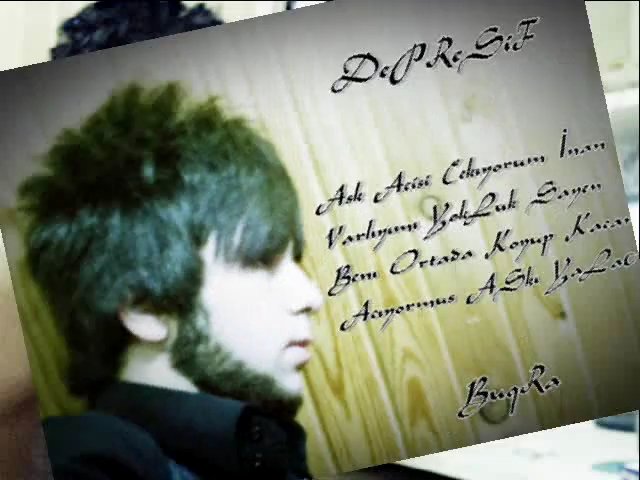 DePReSiF
Ask Acisi Cekıyorum İnan
Varlıyım YokLuk Sayen
Benı Ortada Koyup Kacan
Acıyormus ASkı YaLaC
BuqRa